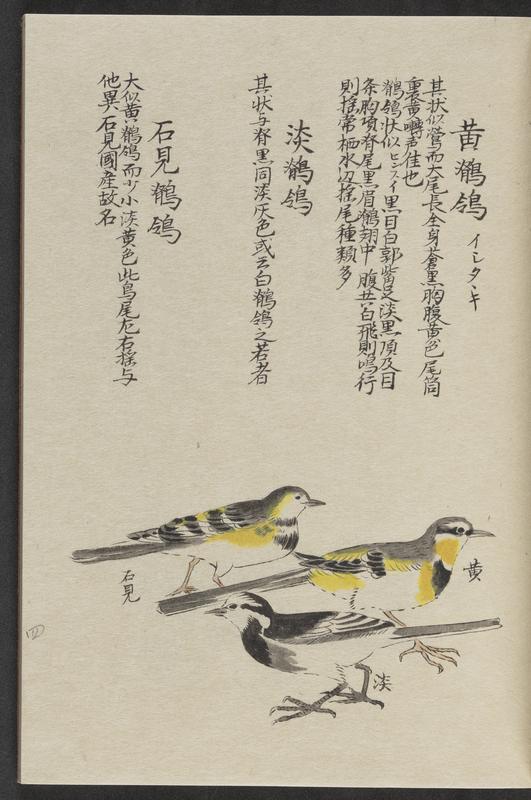 黄鶺鴒 イシタヽキ
其状似鶯而大尾長全身蒼黒胸腹黄色尾筒
裏黄囀声佳也
鶺鴒状似ヒンスイ黒目白郭觜足淡黒頂及目
条胸項脊尾黒眉鶺翅中腹共白飛則鳴行
則揺常栖水辺揺尾種類多
淡鶺鴒
其状与脊黒同淡灰色或云白鶺鴒之若者
石見鶺鴒
大似黄鶺鴒而少小淡黄色此鳥尾左右揺与
他異石見國産故名
石見
黄
淡
四